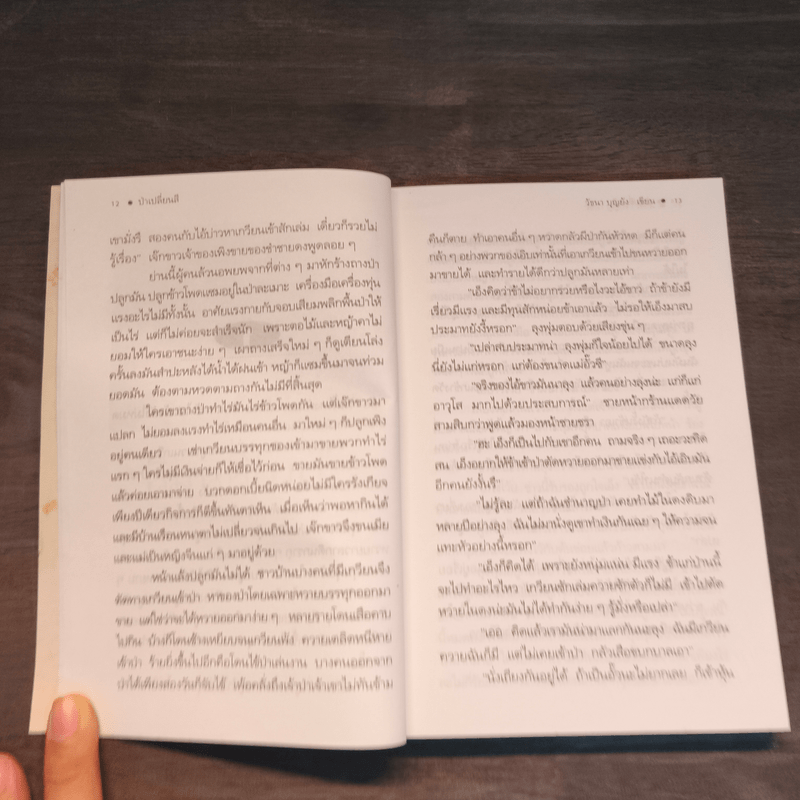 12 ● ป่าเปลี่ยนสี
เขามั่งรึ สองคนกับไอ้บ่าวหาเกวียนเข้าสักเล่ม เดี๋ยวก็รวยไม่
รู้เรื่อง" เจ๊กขาวเจ้าของเพิงขายของชำชายดงพูดลอย ๆ
ย่านนี้ผู้คนล้วนอพยพจากที่ต่าง ๆ มาหักร้างถางป่า
ปลูกมัน ปลูกข้าวโพดแซมอยู่ในป่าละเมาะ เครื่องมือเครื่องทุ่น
แรงอะไรไม่มีทั้งนั้น อาศัยแรงกายกับจอบเสียมพลิกพื้นป่าให้
เป็นไร่ แต่ก็ไม่ค่อยจะสำเร็จนัก เพราะตอไม้และหญ้าคาไม่
ยอมให้ใครเอาชนะง่าย ๆ เผาถางเสร็จใหม่ ๆ ก็ดูเตียนโล่ง
ครั้นลงมันสำปะหลังได้น้ำได้ฝนเข้า หญ้าก็แซมขึ้นมาจนท่วม
ยอดมัน ต้องตามหวดตามถางกันไม่มีที่สิ้นสุด
ใครเขาถางป่าทำไร่มันไร่ข้าวโพดกัน แต่เจ๊กขาวมา
แปลก ไม่ยอมลงแรงทำไร่เหมือนคนอื่น มาใหม่ ๆ ก็ปลูกเพิง
อยู่คนเดียว เช่าเกวียนบรรทุกของเข้ามาขายพวกทำไร่
แรก ๆ ใครไม่มีเงินจ่ายก็ให้เชื่อไว้ก่อน ขายมันขายข้าวโพด
แล้วค่อยเอามาจ่าย บวกดอกเบี้ยนิดหน่อยไม่มีใครรังเกียจ
เพียงปีเดียวกิจการก็ดีขึ้นทันตาเห็น เมื่อเห็นว่าพอหากินได้
และมีบ้านเรือนหนาตาไม่เปลี่ยวจนเกินไป เจ๊กขาวจึงขนเมีย
และแม่เป็นหญิงจีนแก่ ๆ มาอยู่ด้วย
หน้าแล้งปลูกมันไม่ได้ ชาวบ้านบางคนที่มีเกวียนจึง
จัดหาเกวียนเข้าป่า หาของป่าโดยเฉพาะหวายบรรทุกออกมา
ขาย แต่ใช่ว่าจะได้หวายออกมาง่าย ๆ หลายรายโดนเสือคาบ
ไปกิน บ้างก็โดนช้างเหยียบจนเกวียนพัง ควายเตลิดหนีหาย
เข้าป่า ร้ายยิ่งขึ้นไปอีกคือโดนไข้ป่าเล่นงาน บางคนออกจาก
ป่าได้เพียงสองวันก็จับไข้ เพ้อคลั่งถึงเจ้าป่าเจ้าเขาไม่ทันข้าม
วัชนา บุญยัง เขียน ● 13
คืนก็ตาย ทำเอาคนอื่น ๆ หวาดกลัวมีป่ากันหัวหด มีก็แต่คน
กล้า ๆ อย่างพวกของเอิบเท่านั้นที่เอาเกวียนเข้าไปขนหวายออก
มาขายได้ และทำรายได้ดีกว่าปลูกมันหลายเท่า
"เอ็งคิดว่าข้าไม่อยากรวยหรือไงวะไอ้ขาว ถ้าข้ายังมี
เรี่ยวมีแรง และมีทุนสักหน่อยข้าเอาแล้ว ไม่รอให้เอ็งมาสบ
ประมาทยังงี้หรอก" ลุงพุ่มตอบด้วยเสียงขุ่น ๆ
"เปล่าสบประมาทน่า ลุงพุ่มก็ใจน้อยไปได้ ขนาดลุง
นี่ยังไม่แก่หรอก แก่ต้องขนาดแม่อั๊วซี"
"จริงของไอ้ขาวมันนาลุง แล้วคนอย่างลุงน่ะ แก่ก็แก่
อาวุโส มากไปด้วยประสบการณ์" ชายหน้ากร้านแดดวัย
สามสิบกว่าพูดแล้วมองหน้าชายชรา
"ฮะ เอ็งก็เป็นไปกับเขาอีกคน ถามจริง ๆ เถอะวะทิด
สน เอ็งอยากให้ข้าเข้าป่าตัดหวายออกมาขายแข่งกับไอ้เอิบมัน
อีกคนยังงั้นรึ"
"ไม่รู้ละ แต่ถ้าฉันชำนาญป่า เคยทำไม้ในดงดิบมา
หลายปีอย่างลุง ฉันไม่มานั่งดูเขาทำเงินกันเฉย ๆ ให้ความจน
แทะหัวอย่างนี้หรอก"
"เอ็งก็คิดได้ เพราะยังหนุ่มแน่น มีแรง ข้าแก่ปานนี้
จะไปทำอะไรไหว เกวียนซักเล่มควายซักตัวก็ไม่มี เข้าไปตัด
หวายในดงน่ะมันไม่ได้ทำกันง่าย ๆ รู้มั่งหรือเปล่า"
"เออ คิดแล้วเรามันน่ามาแลกกันนะลุง ฉันมีเกวียน
ควายฉันก็มี แต่ไม่เคยเข้าป่า กลัวเสือขบกบาลเอา"
"นั่งเถียงกันอยู่ได้ ถ้าเป็นอั๊วนะไม่ยากเลย ก็เข้าหุ้น